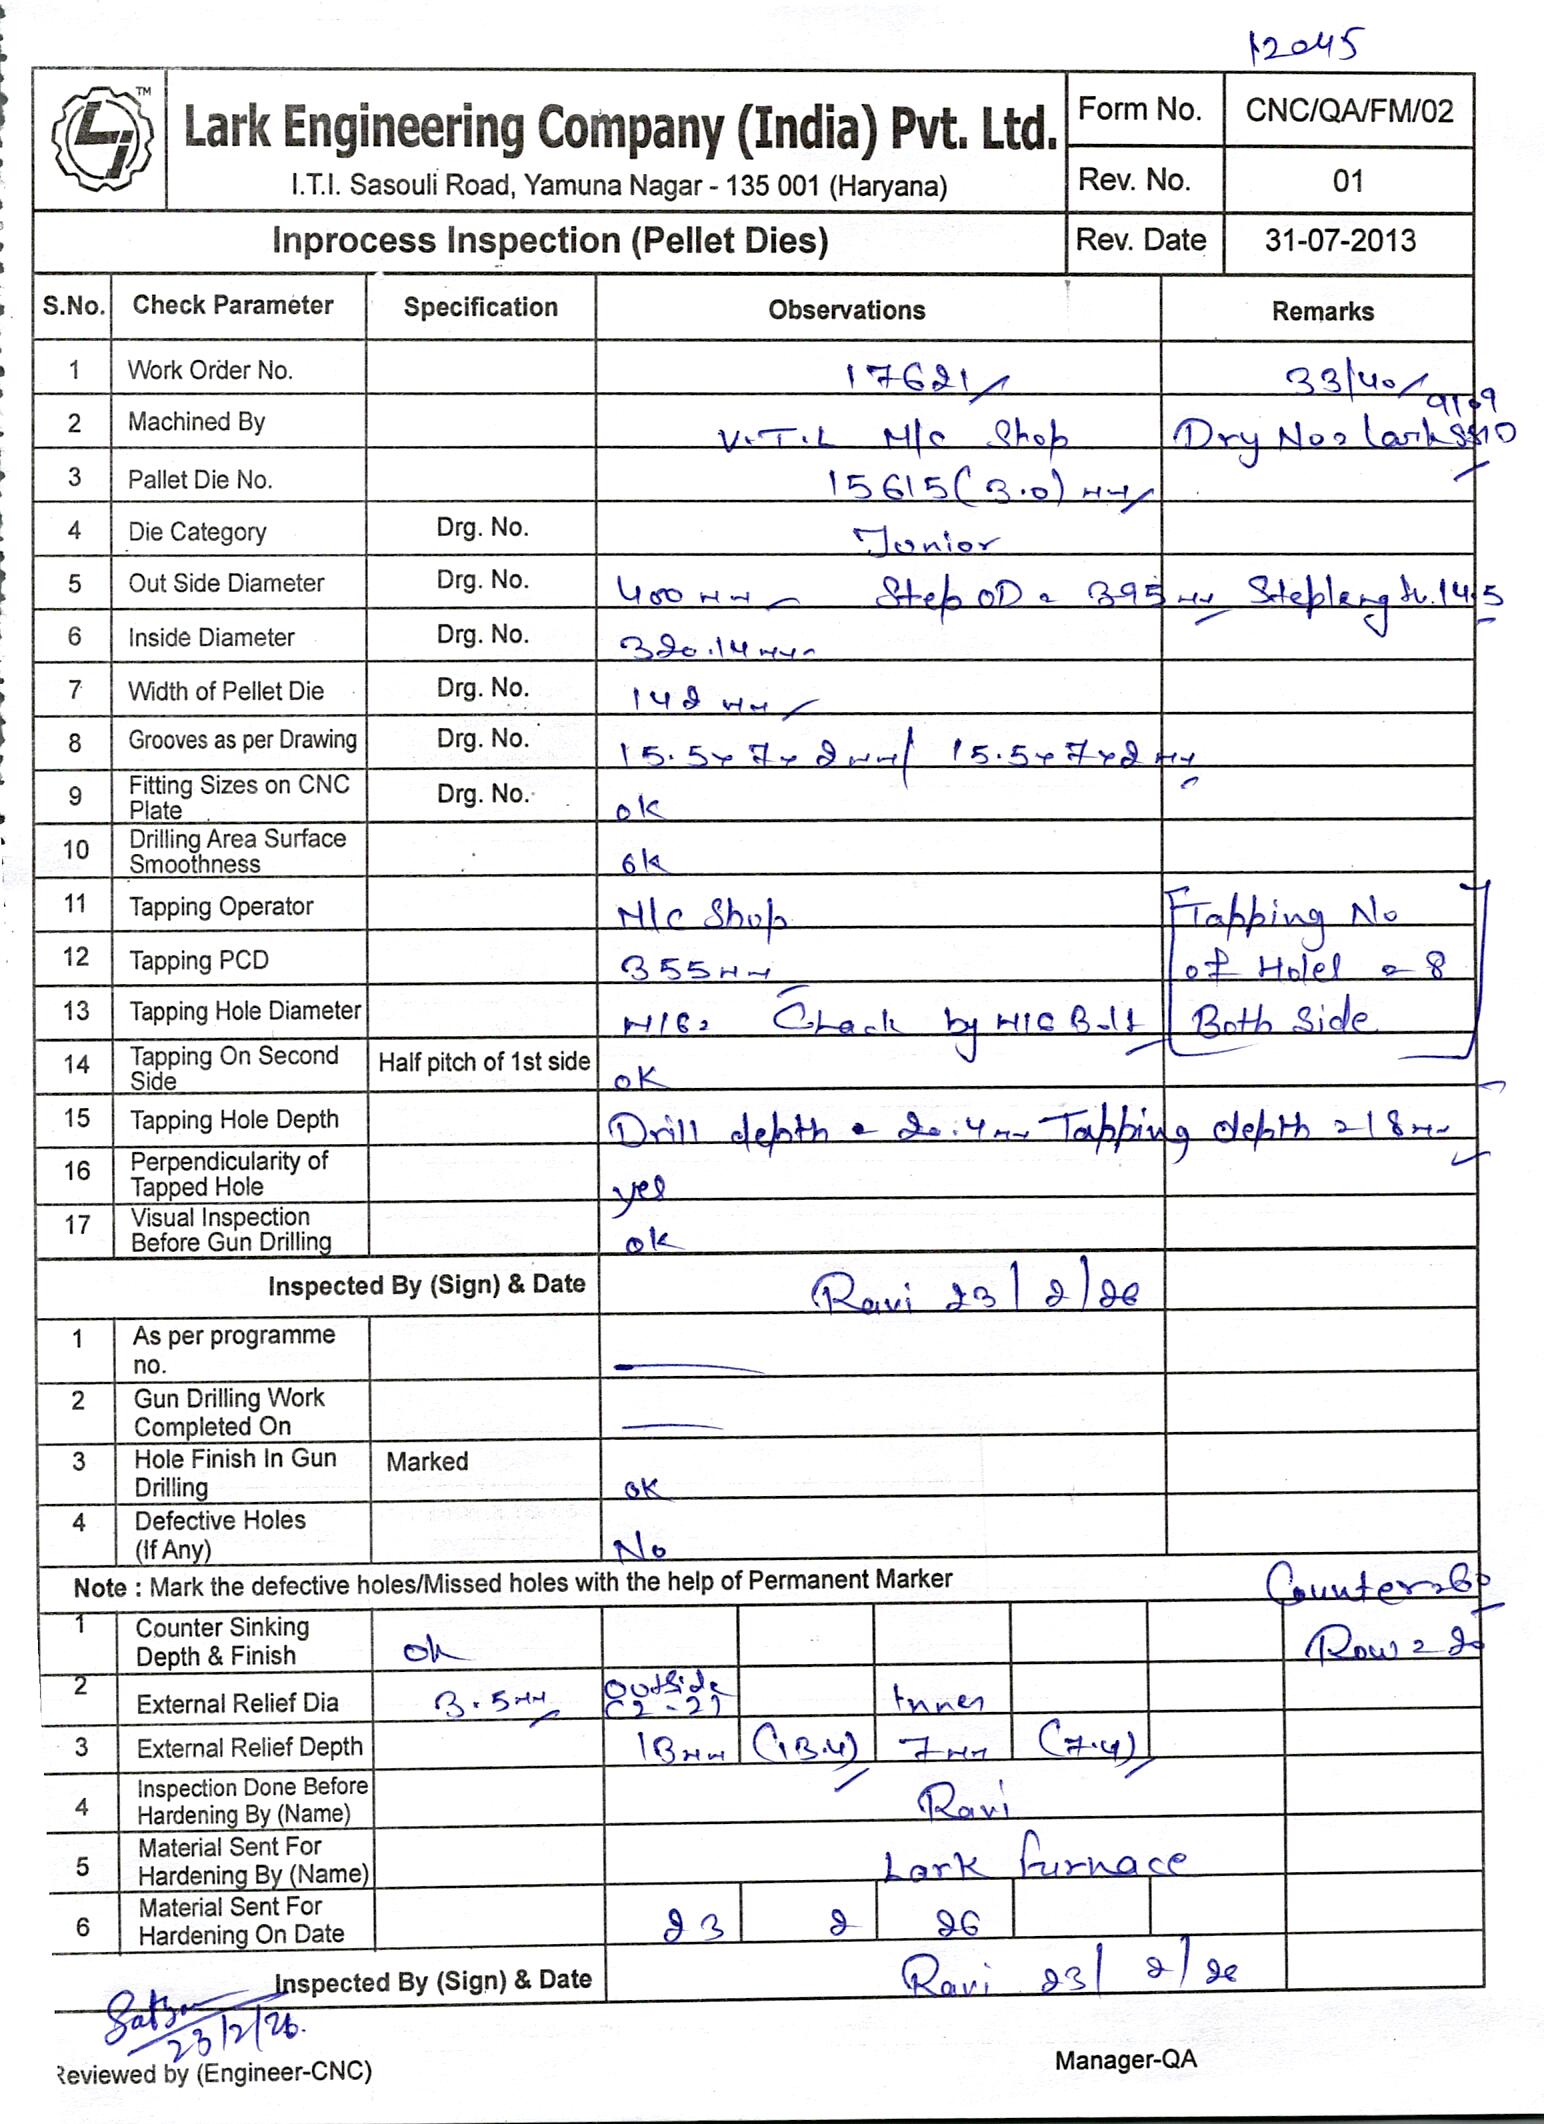 12045
TM
Lark Engineering Company (India) Pvt. Ltd.
I.T.I. Sasouli Road, Yamuna Nagar - 135 001 (Haryana)
Form No. CNC/QA/FM/02
Rev. No. 01
Inprocess Inspection (Pellet Dies)
Rev. Date 31-07-2013
S.No. Check Parameter Specification Observations Remarks
1 Work Order No. 17621 33/40
2 Machined By V.T.L M/c Shop Drg No = Lark
3 Pallet Die No. 15615 (3.0) mm
4 Die Category Drg. No. Junior
5 Out Side Diameter Drg. No. 400 mm Step OD = 395 mm Step length. 14.5
6 Inside Diameter Drg. No. 320.14 mm
7 Width of Pellet Die Drg. No. 142 mm
8 Grooves as per Drawing Drg. No. 15.5x7x2mm / 15.5x7x2mm
9 Fitting Sizes on CNC Plate Drg. No. ok
10 Drilling Area Surface Smoothness ok
11 Tapping Operator M/c Shop Tapping No
12 Tapping PCD 355mm of Holes = 8
13 Tapping Hole Diameter M16 = Check by M16 Bolt Both Side
14 Tapping On Second Side Half pitch of 1st side ok
15 Tapping Hole Depth Drill depth = 20.4mm Tapping depth = 18mm
16 Perpendicularity of Tapped Hole yes
17 Visual Inspection Before Gun Drilling ok
Inspected By (Sign) & Date Ravi 23/2/26
1 As per programme no. —
2 Gun Drilling Work Completed On —
3 Hole Finish In Gun Drilling Marked ok
4 Defective Holes (If Any) No
Note : Mark the defective holes/Missed holes with the help of Permanent Marker
Counter = 60
1 Counter Sinking Depth & Finish ok Row = 20
2 External Relief Dia 3.5mm outside (2-2) Inner
3 External Relief Depth 13mm (13.4) 7mm (7.4)
4 Inspection Done Before Hardening By (Name) Ravi
5 Material Sent For Hardening By (Name) Lark furnace
6 Material Sent For Hardening On Date 23 2 26
Inspected By (Sign) & Date Ravi 23/2/26
23/2/26.
Reviewed by (Engineer-CNC) Manager-QA